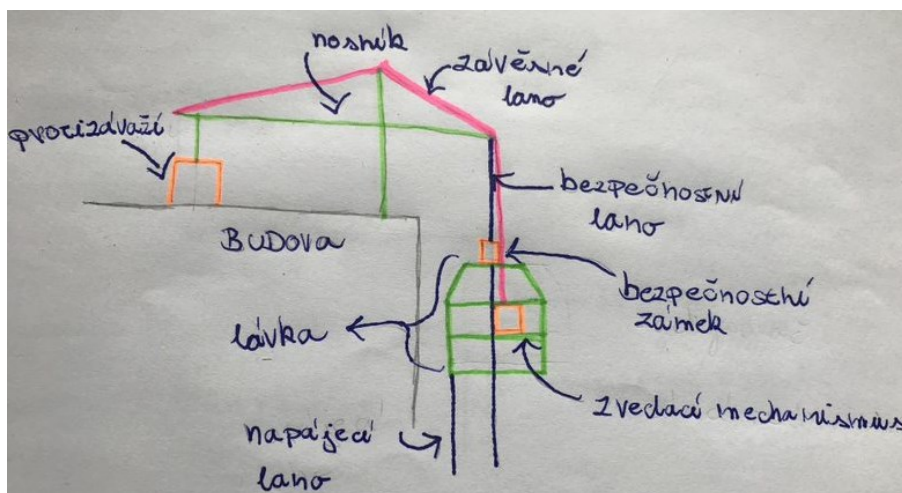 nosník
závěsné
lano
protizávaží
bezpečnostní
lano
BUDOVA
bezpečnostní
zámek
lávka
zvedací mechanismus
napájecí
lano